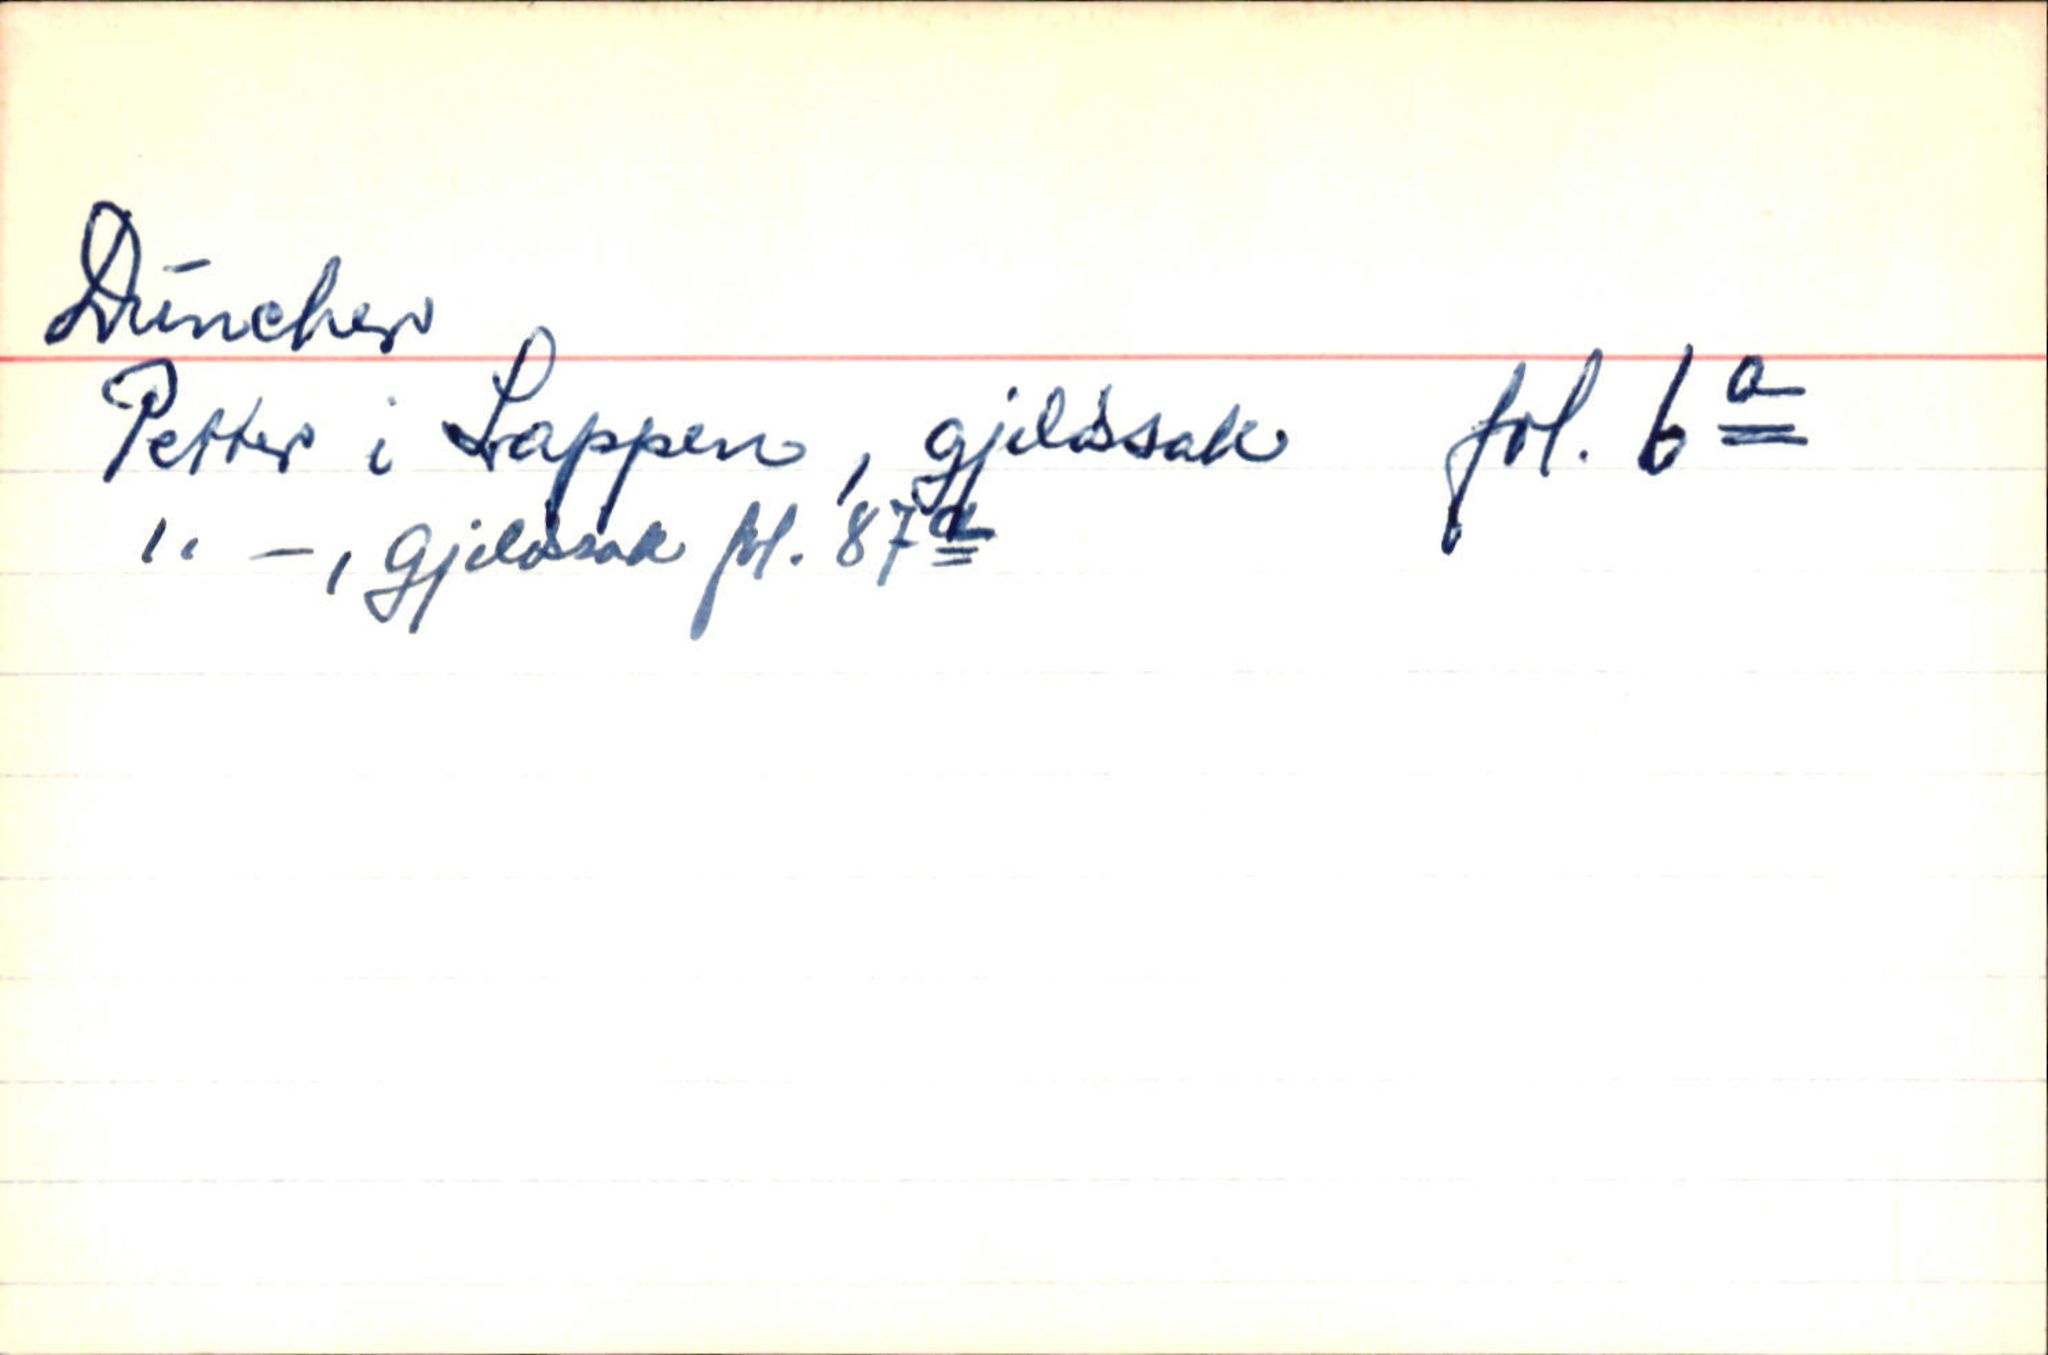 Düncher
Petter i Lappen, gjeldssak fol. 6a
" —, Gjeldssak fol. 87a